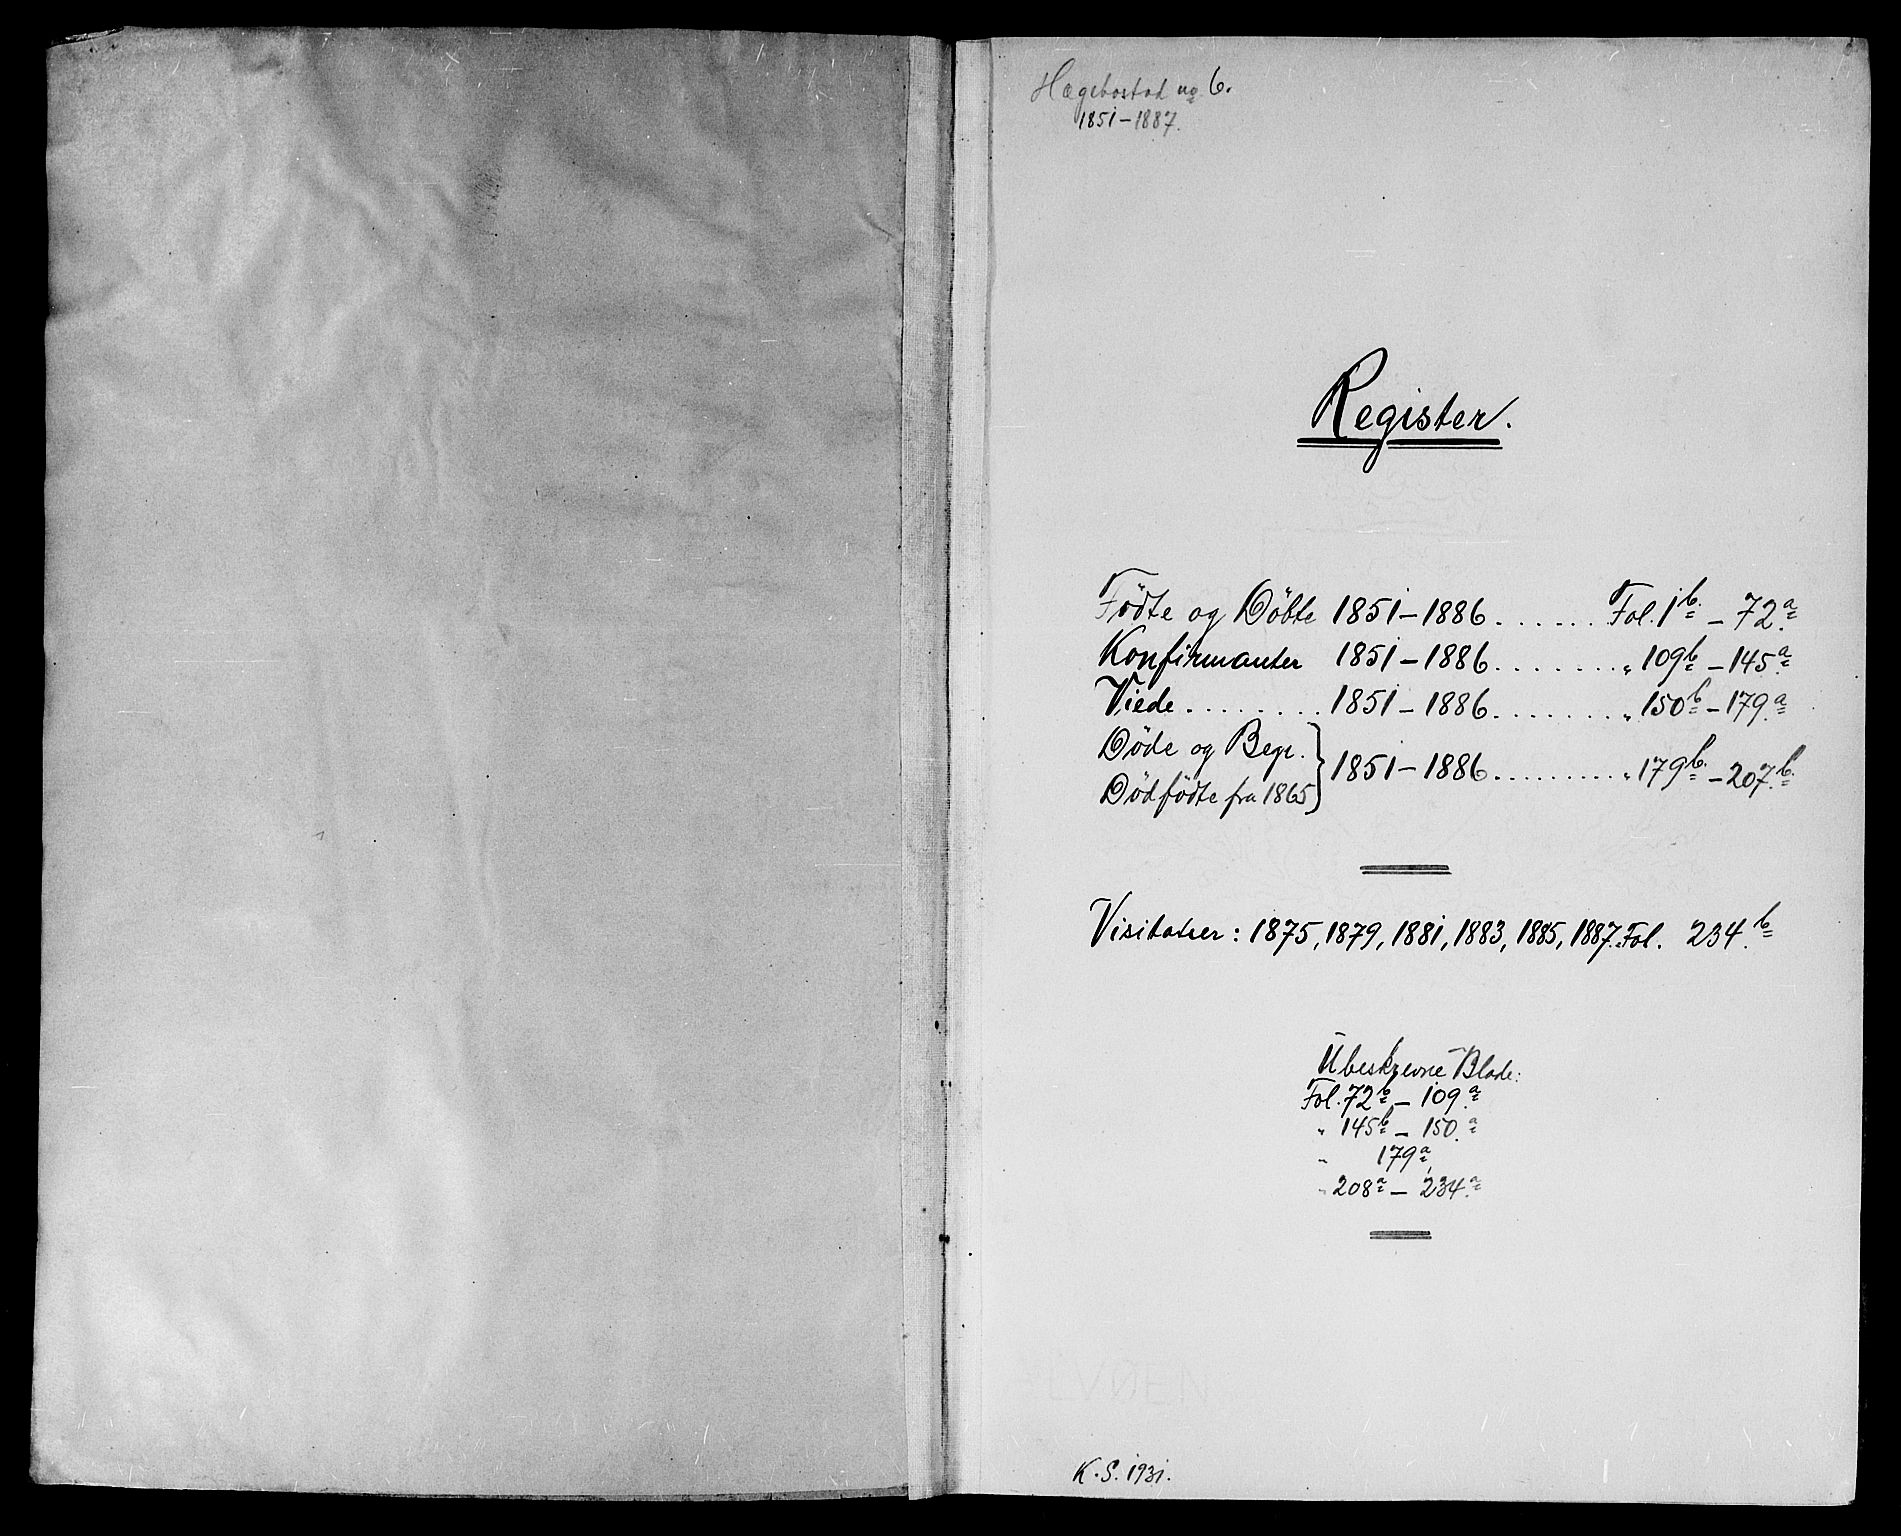 Hægebostad no 6.
1851-1887.
Register.
Födte og Döbte 1851-1886 . . . . . . Fol. 1b - 72a
Konfirmanter 1851-1886 . . . . . . . „ 109b - 145a
Viede . . . . . . . . 1851-1886 . . . . . . . „ 150b - 179a
Döde og Begr. } 1851-1886 . . . . . . . . „ 179b - 207b
Dödfödte fra 1865
Visitatser: 1875, 1879, 1881, 1883, 1885, 1887. Fol. 234b
Ubeskrevne Blade:
Fol. 72b - 109a
„ 145b - 150a
„ 179a
„ 208a - 234a
LVØEN
K.S. 1931.